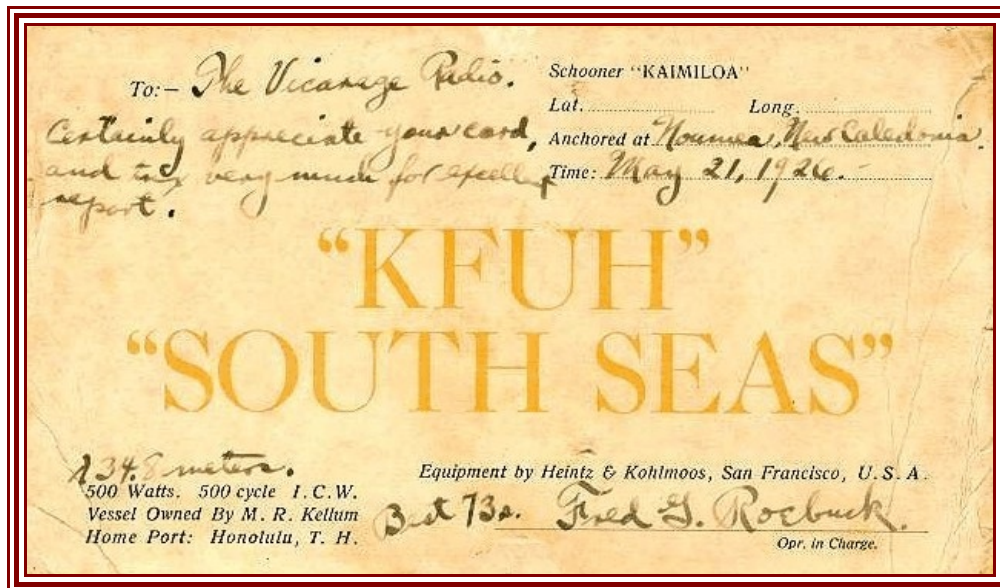 To:— The Vicarage Radio.
Certainly appreciate your card,
and tnx very much for excellent
report.
Schooner "KAIMILOA"
Lat. Long.
Anchored at Noumea, New Caledonia.
Time: May 21, 1926.
"KFUH"
"SOUTH SEAS"
λ 34.8 meters.
500 Watts. 500 cycle I.C.W.
Vessel Owned By M. R. Kellum
Home Port: Honolulu, T. H.
Equipment by Heintz & Kohlmoos, San Francisco, U. S. A.
Best 73s. Fred G. Roebuck.
Opr. in Charge.